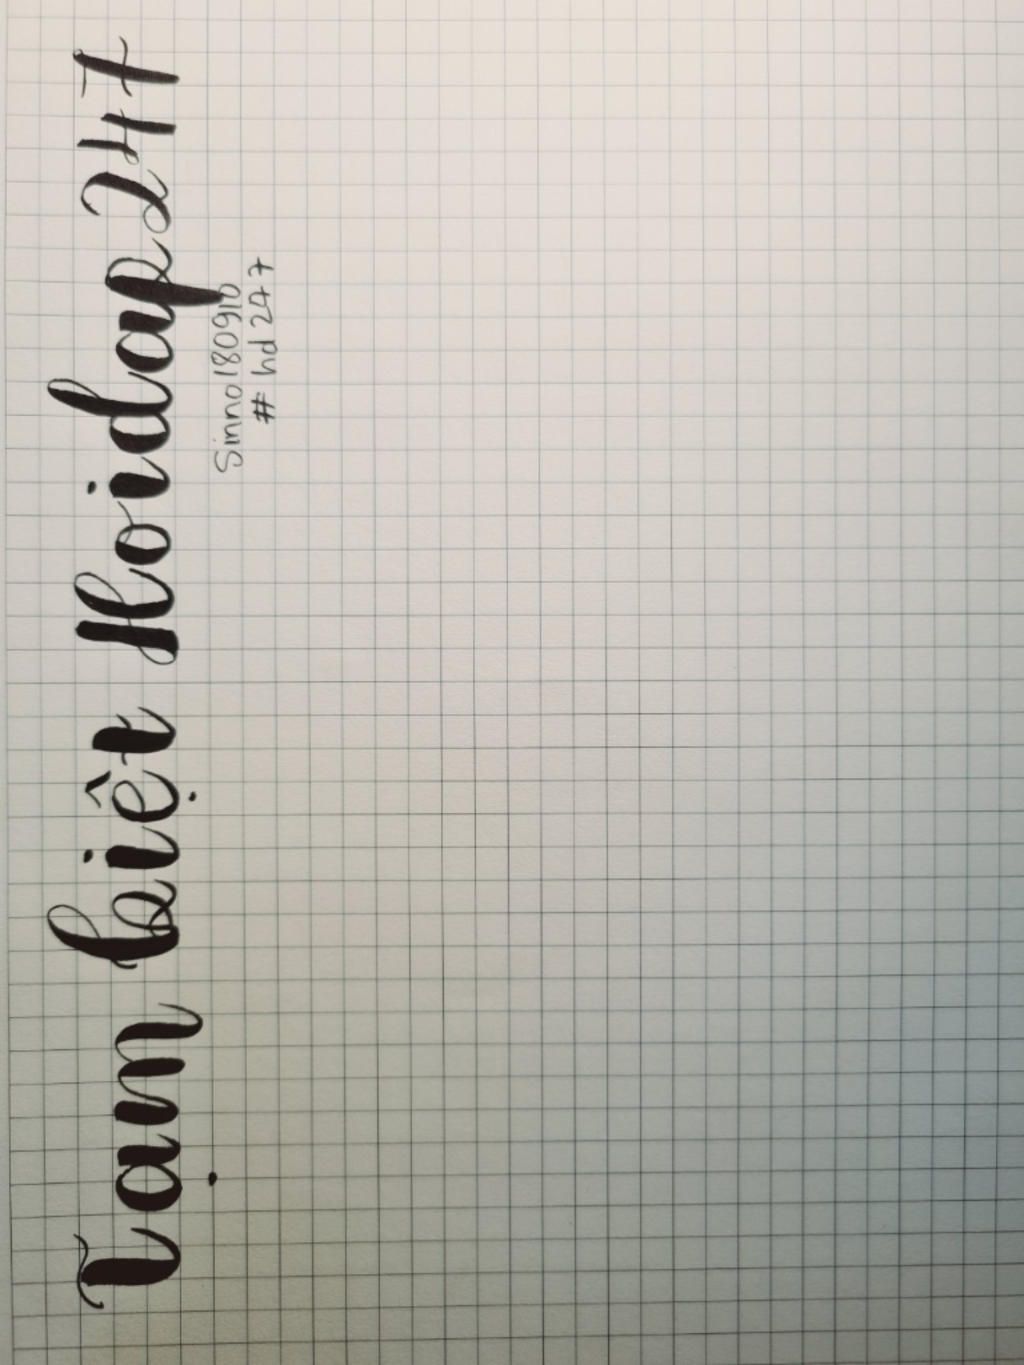 Tạm biệt Hoidap247
Sinno180910
# hd247